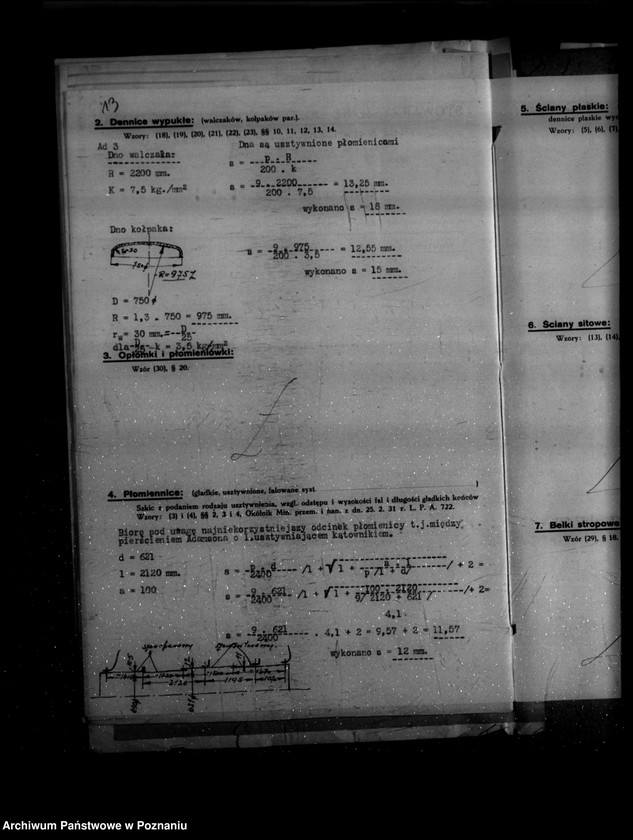 13
2. Dennice wypukłe: (walczaków, kołpaków par.).
Wzory: (18), (19), (20), (21), (22), (23), §§ 10, 11, 12, 13, 14.
Ad 3
Dno walczaka:
Dna są usztywnione płomienicami
R = 2200 mm.
s = p . R / 200 . k
K = 7,5 kg./mm²
s = 9 . 2200 / 200 . 7,5 = 13,25 mm.
wykonano s = 18 mm.
Dno kołpaka:
s = 9 . 975 / 200 . 3,5 = 12,55 mm.
R=975
wykonano s = 15 mm.
D = 750
R = 1,3 . 750 = 975 mm.
rw = 30 mm. = D / 25
dla D / 25 k = 3,5 kg/mm²
3. Opłomki i płomieniówki:
Wzór (30), § 20.
4. Płomiennice: (gładkie, usztywnione, falowane syst. )
Szkic z podaniem rodzaju usztywnienia, wzgl. odstępu i wysokości fal i długości gładkich końców
Wzory: (3) i (4), §§ 2, 3 i 4, Okólnik Min. przem. i han. z dn. 25. 2. 31 r. L. P. A. 722.
Biorę pod uwagę najniekorzystniejszy odcinek płomienicy t.j.między
pierścieniem Adamsona o 1.usztywniającem kątownikiem.
d = 621
l = 2120 mm.
s = p . d / 2400 /1 + √ 1 + a . l / p /l + d/ / + 2 =
a = 100
s = 9 . 621 / 2400 /1 + √ 1 + 100 . 2120 / 9/ 2120 + 621 / /+ 2=
4,1
s = 9 . 621 / 2400 . 4,1 + 2 = 9,57 + 2 = 11,57
wykonano s = 12 mm.
2120
1145
5. Ściany płaskie:
dennice płaskie
Wzory: (5), (6), (7)
6. Ściany sitowe:
Wzory: (13), (14)
7. Belki stropowe
Wzór (29), § 18.
Archiwum Państwowe w Poznaniu